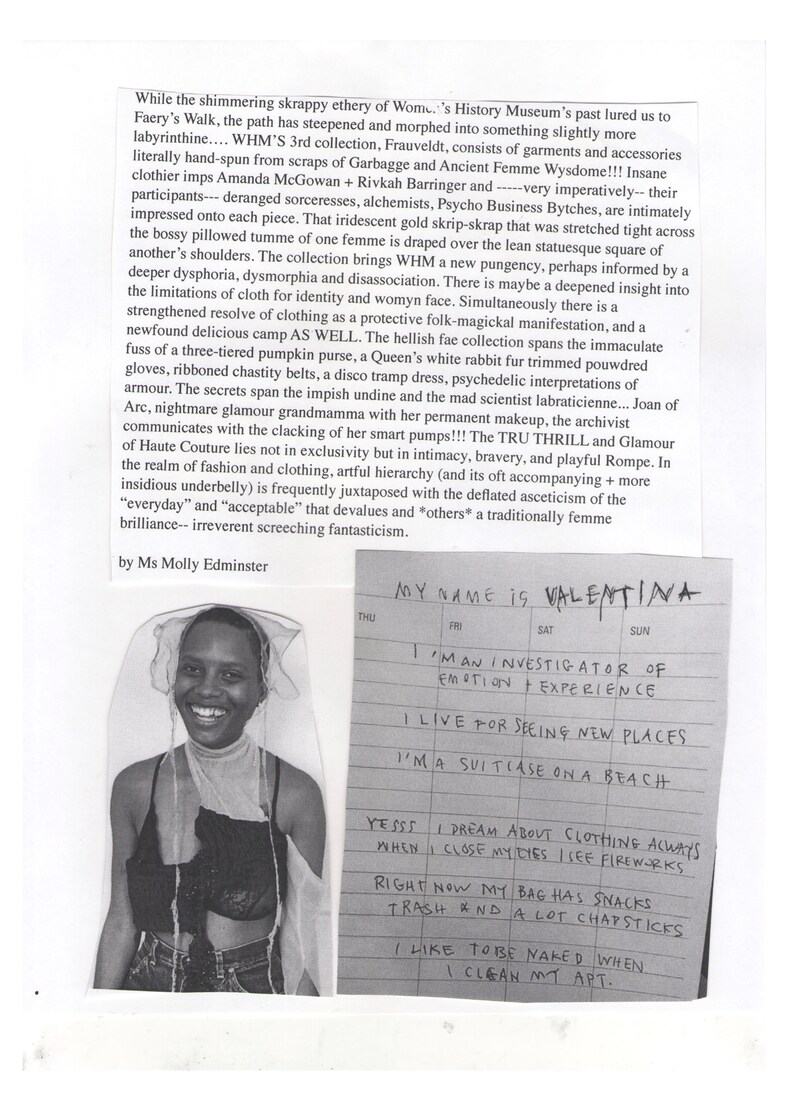 While the shimmering skrappy ethery of Women's History Museum's past lured us to
Faery's Walk, the path has steepened and morphed into something slightly more
labyrinthine.... WHM'S 3rd collection, Frauveldt, consists of garments and accessories
literally hand-spun from scraps of Garbagge and Ancient Femme Wysdome!!! Insane
clothier imps Amanda McGowan + Rivkah Barringer and -----very imperatively-- their
participants--- deranged sorceresses, alchemists, Psycho Business Bytches, are intimately
impressed onto each piece. That iridescent gold skrip-skrap that was stretched tight across
the bossy pillowed tumme of one femme is draped over the lean statuesque square of
another's shoulders. The collection brings WHM a new pungency, perhaps informed by a
deeper dysphoria, dysmorphia and disassociation. There is maybe a deepened insight into
the limitations of cloth for identity and womyn face. Simultaneously there is a
strengthened resolve of clothing as a protective folk-magickal manifestation, and a
newfound delicious camp AS WELL. The hellish fae collection spans the immaculate
fuss of a three-tiered pumpkin purse, a Queen's white rabbit fur trimmed pouwdred
gloves, ribboned chastity belts, a disco tramp dress, psychedelic interpretations of
armour. The secrets span the impish undine and the mad scientist labraticienne... Joan of
Arc, nightmare glamour grandmamma with her permanent makeup, the archivist
communicates with the clacking of her smart pumps!!! The TRU THRILL and Glamour
of Haute Couture lies not in exclusivity but in intimacy, bravery, and playful Rompe. In
the realm of fashion and clothing, artful hierarchy (and its oft accompanying + more
insidious underbelly) is frequently juxtaposed with the deflated asceticism of the
“everyday” and “acceptable” that devalues and *others* a traditionally femme
brilliance-- irreverent screeching fantasticism.
by Ms Molly Edminster
MY NAME IS VALENTINA
THU FRI SAT SUN
I'M AN INVESTIGATOR OF
EMOTION + EXPERIENCE
I LIVE FOR SEEING NEW PLACES
I'M A SUITCASE ON A BEACH
YESSS I DREAM ABOUT CLOTHING ALWAYS
WHEN I CLOSE MY EYES I SEE FIREWORKS
RIGHT NOW MY BAG HAS SNACKS
TRASH AND A LOT CHAPSTICKS
I LIKE TO BE NAKED WHEN
I CLEAN MY APT.